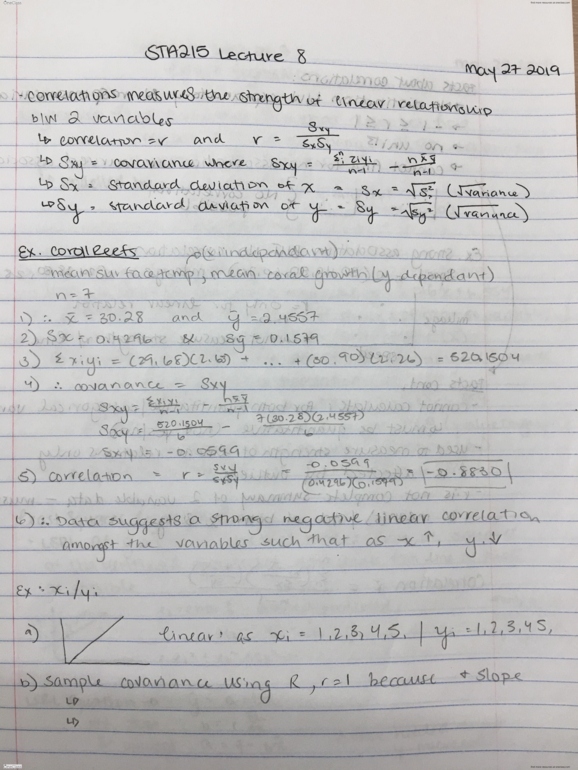 STA215 Lecture 8
May 27 2019
- correlations measures the strength of linear relationship
b/w 2 variables
↳ correlation = r and r = Sxy / SxSy
↳ Sxy = covariance where Sxy = Σ xiyi / n-1 - n x̄ ȳ / n-1
↳ Sx = standard deviation of x = Sx = √S²x (√variance)
↳ Sy = standard deviation of y = Sy = √Sy² (√variance)
Ex. Coral Reefs (x independant)
mean surface temp, mean coral growth (y dependant)
n = 7
1) ∴ x̄ = 30.28 and ȳ = 2.4557
2) Sx = 0.4296 & Sy = 0.1579
3) Σ xiyi = (29.68)(2.63) + ... + (30.90)(2.26) = 520.1504
4) ∴ covariance = Sxy
Sxy = Σxiyi / n-1 - n x̄ ȳ / n-1
Sxy = 520.1504 / 6 - 7(30.28)(2.4557) / 6
Sxy = -0.0599
5) correlation = r = Sxy / SxSy = -0.0599 / (0.4296)(0.1579) = -0.8830
6) ∴ Data suggests a strong negative linear correlation
amongst the variables such that as x ↑, y ↓
Ex: xi/yi
a) linear, as xi = 1,2,3,4,5, | yi = 1,2,3,4,5,
b) sample covariance using R, r=1 because + slope
↳
↳